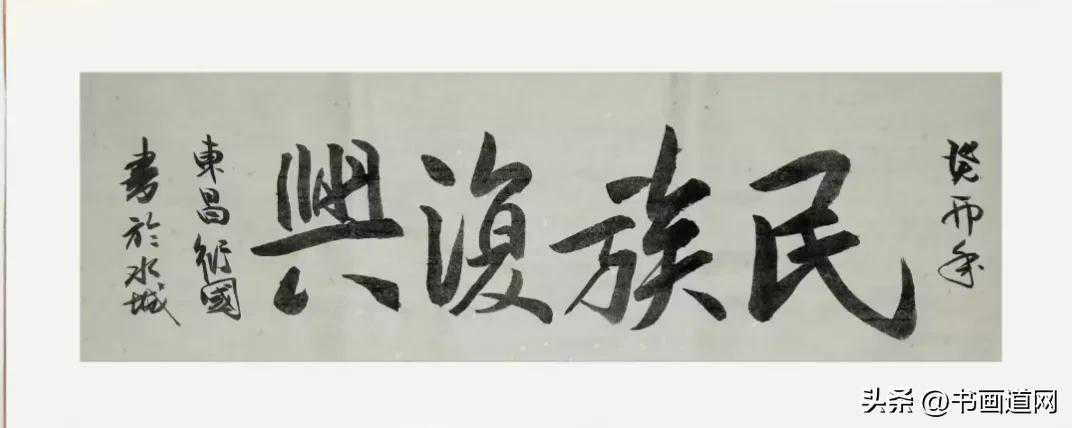 癸卯年
民族復興
東昌衍國
書於水城
头条 @书画道网